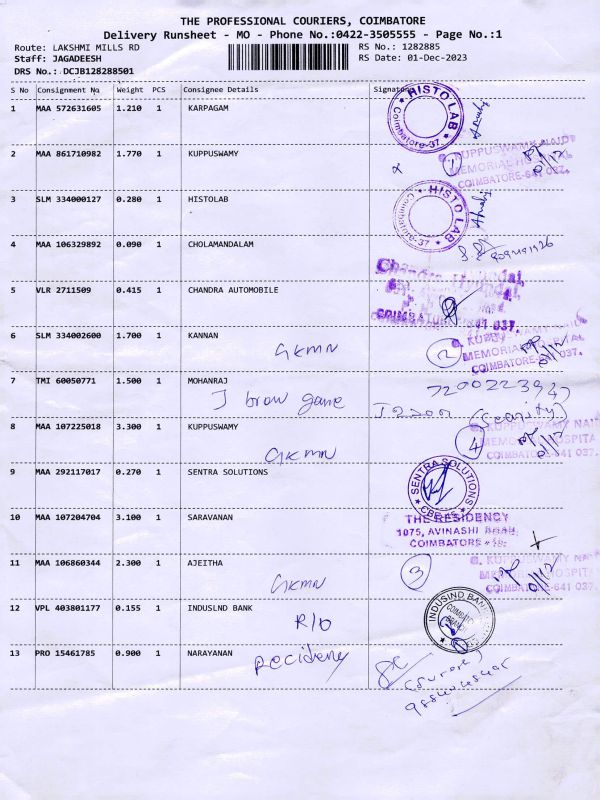 THE PROFESSIONAL COURIERS, COIMBATORE
Delivery Runsheet - MO - Phone No.:0422-3505555 - Page No.:1
Route: LAKSHMI MILLS RD RS No.: 1282885
Staff: JAGADEESH RS Date: 01-Dec-2023
DRS No.: DCJB128288501
S No Consignment No Weight PCS Consignee Details Signature
1 MAA 572631605 1.210 1 KARPAGAM
HISTO LAB
Coimbatore-37
2 MAA 861710982 1.770 1 KUPPUSWAMY
1
G. KUPPUSWAMY NAIDU
MEMORIAL HOSPITAL
COIMBATORE-641 037.
3 SLM 334000127 0.280 1 HISTOLAB
HISTO LAB
Coimbatore-37
4 MAA 106329892 0.090 1 CHOLAMANDALAM
5 VLR 2711509 0.415 1 CHANDRA AUTOMOBILE
Chandra Hyundai,
COIMBATORE-641 037.
6 SLM 334002600 1.700 1 KANNAN
GKMN
2
G. KUPPUSWAMY NAIDU
MEMORIAL HOSPITAL
COIMBATORE-641 037.
7 TMI 60050771 1.500 1 MOHANRAJ
J brow game
7200223947
8 MAA 107225018 3.300 1 KUPPUSWAMY
GKMN
4
G. KUPPUSWAMY NAIDU
MEMORIAL HOSPITAL
COIMBATORE-641 037.
9 MAA 292117017 0.270 1 SENTRA SOLUTIONS
SENTRA SOLUTIONS
CBE-45
10 MAA 107204704 3.100 1 SARAVAN
THE RESIDENCY
1075, AVINASHI ROAD,
COIMBATORE - 18.
11 MAA 106860344 2.300 1 AJEITHA
GKMN
3
G. KUPPUSWAMY NAIDU
MEMORIAL HOSPITAL
COIMBATORE-641 037.
12 VPL 403801177 0.155 1 INDUSLND BANK
R/o
INDUSIND BANK
13 PRO 15461785 0.900 1 NARAYANAN
Recidency